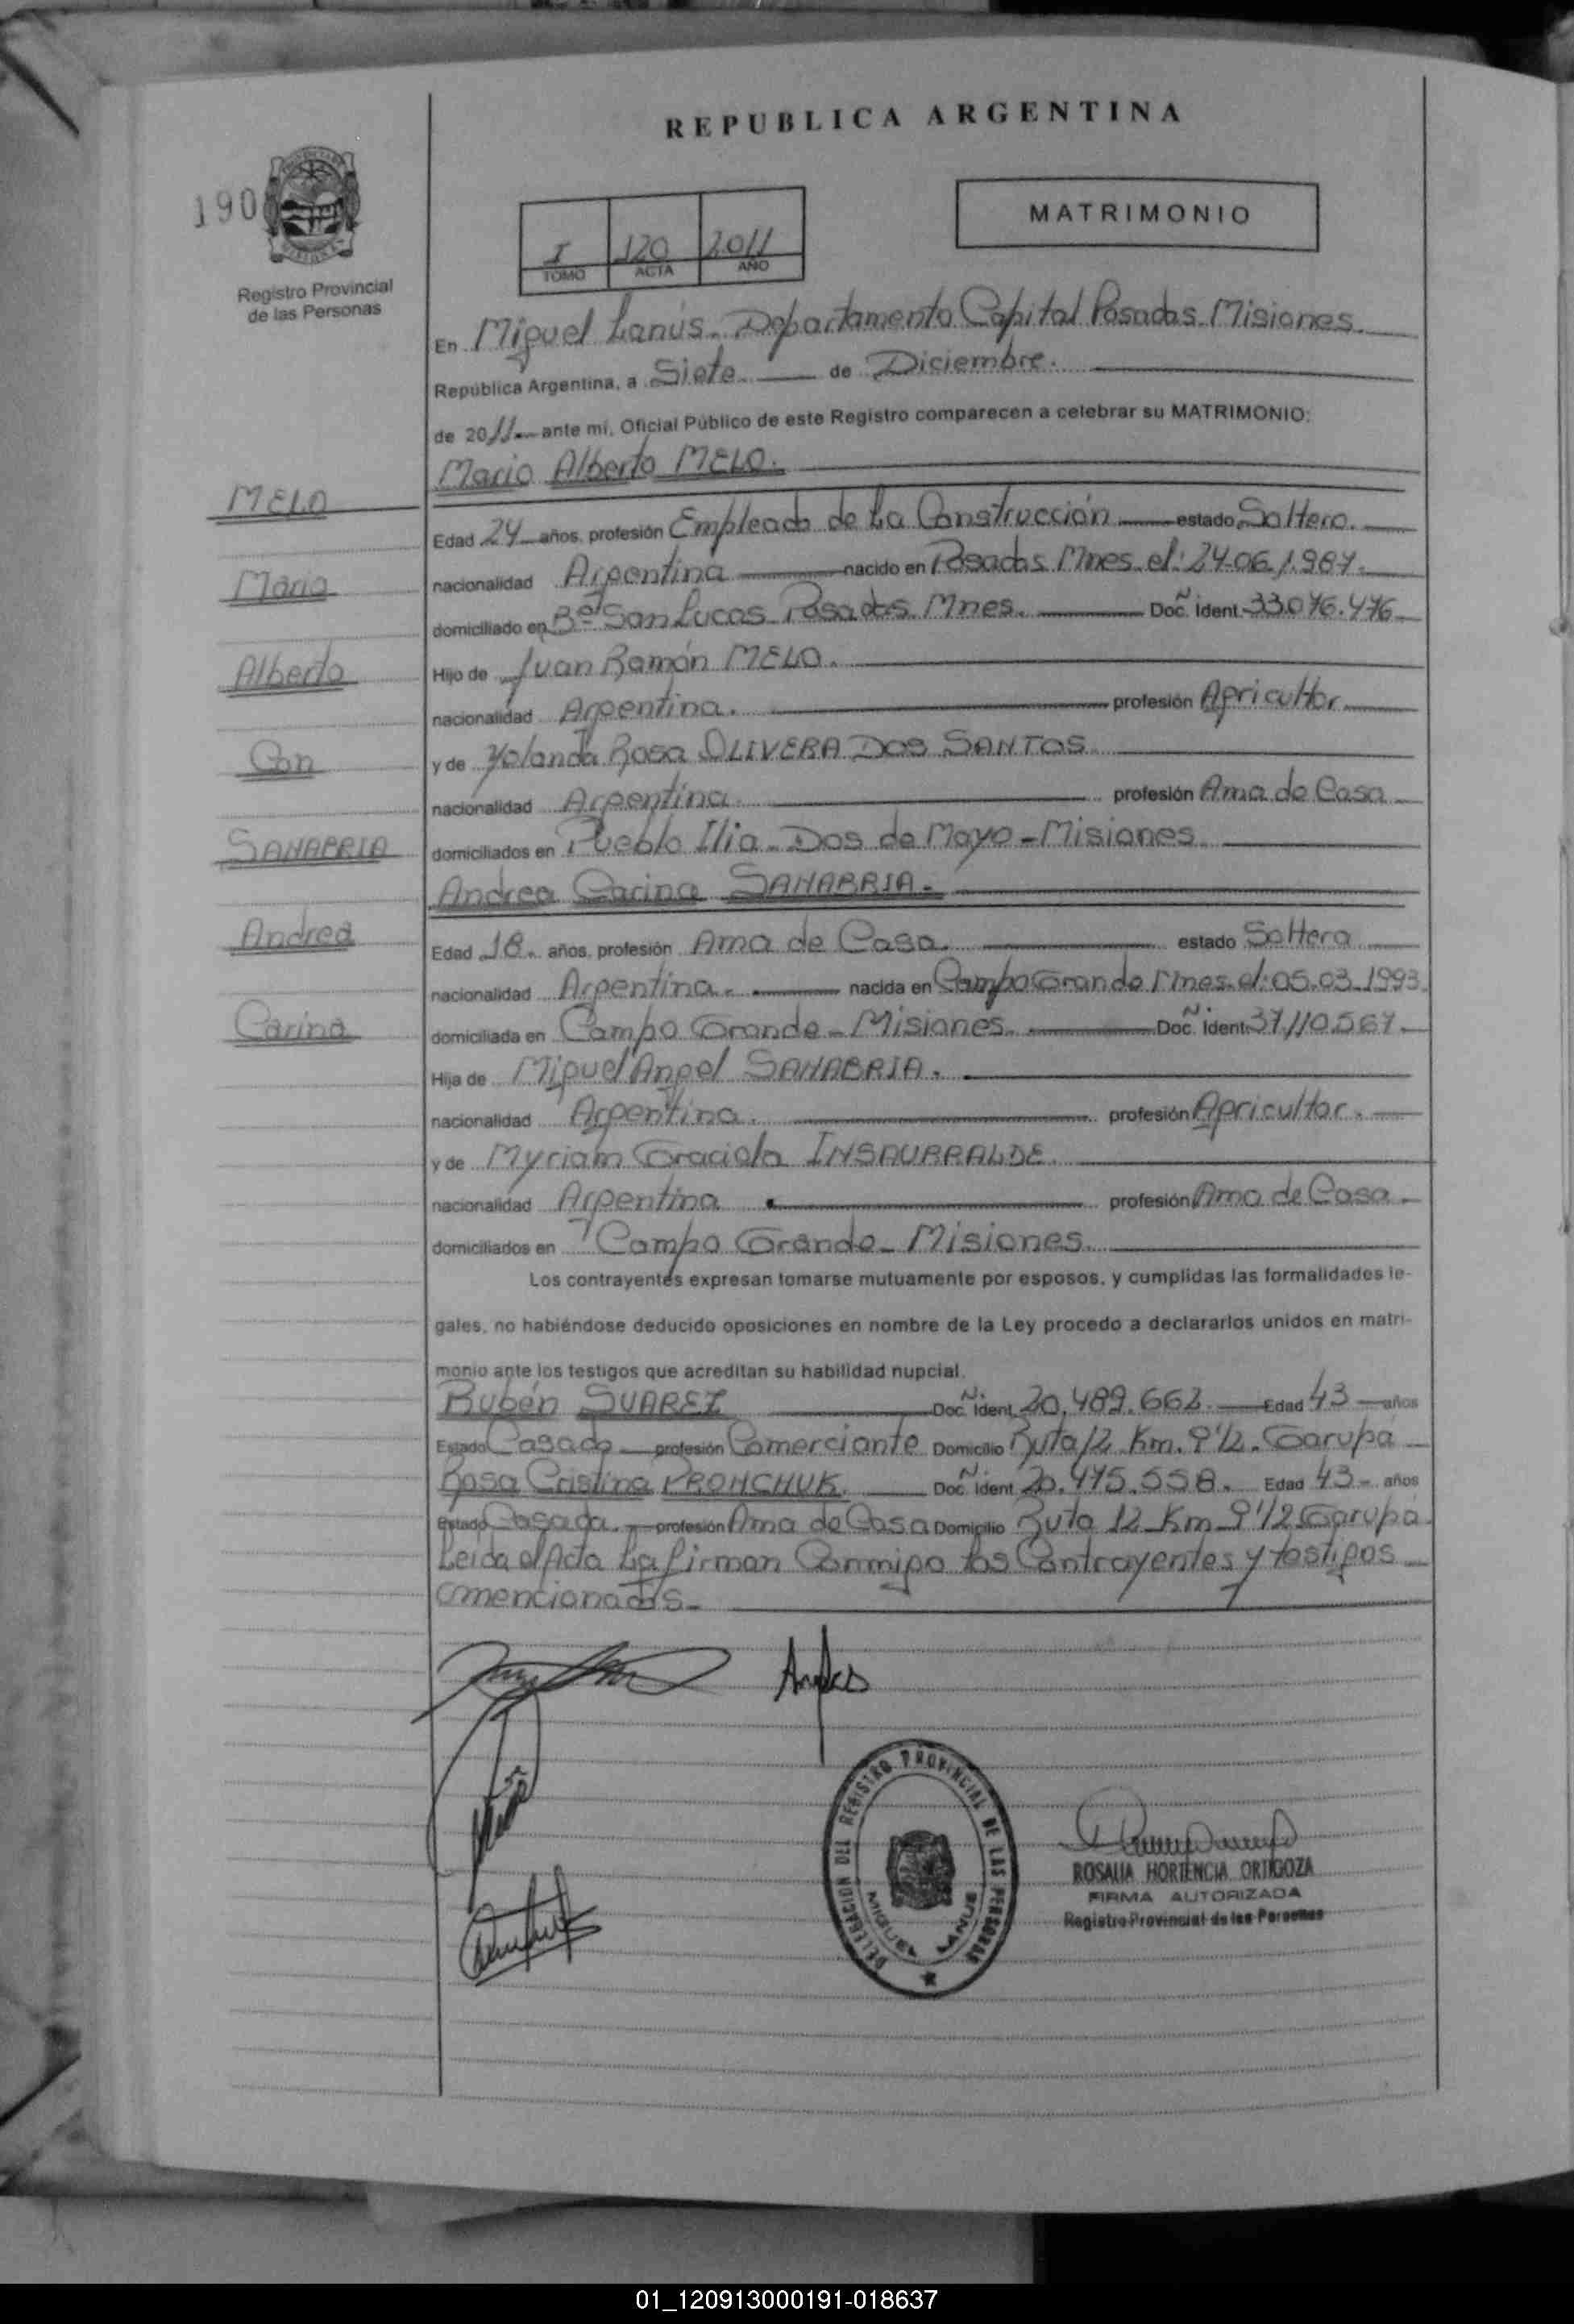 REPUBLICA ARGENTINA
190
MATRIMONIO
I 120 2011
TOMO ACTA AÑO
Registro Provincial
de las Personas
En Miguel Lanús. Departamento Capital Posadas Misiones.
República Argentina, a Siete de Diciembre.
de 2011 ante mí, Oficial Público de este Registro comparecen a celebrar su MATRIMONIO:
Mario Alberto MELO.
MELO
Edad 24 años, profesión Empleado de La Construcción estado Soltero.
Mario
nacionalidad Argentina nacido en Posadas Mnes. el: 24-06-1987.
domiciliado en Bº San Lucas Posadas Mnes. Doc. Ident. 33.076.476
Alberto
Hijo de Juan Ramón MELO.
nacionalidad Argentina. profesión Agricultor.
Con
y de Yolanda Rosa OLIVERA DOS SANTOS.
nacionalidad Argentina. profesión Ama de Casa
SANABRIA
domiciliados en Pueblo Ilia - Dos de Mayo - Misiones.
Andrea Carina SANABRIA.
Andrea
Edad 18. años, profesión Ama de Casa. estado Soltera
nacionalidad Argentina. nacida en Campo Grande Mnes. el: 05.03.1993.
Carina
domiciliada en Campo Grande - Misiones. Doc. Ident. 37.110.567.
Hija de Miguel Angel SANABRIA.
nacionalidad Argentina. profesión Agricultor.
y de Myriam Graciela INSAURRALDE.
nacionalidad Argentina profesión Ama de Casa
domiciliados en Campo Grande - Misiones.
Los contrayentes expresan tomarse mutuamente por esposos, y cumplidas las formalidades le-
gales, no habiéndose deducido oposiciones en nombre de la Ley procedo a declararlos unidos en matri-
monio ante los testigos que acreditan su habilidad nupcial.
Rubén SUAREZ Doc. Ident. 20.489.662. Edad 43 años
Estado Casado profesión Comerciante Domicilio Ruta 12 Km. 9 1/2. Garupá
Rosa Cristina PRONCHUK. Doc. Ident. 20.475.558. Edad 43 años
Estado Casada. profesión Ama de Casa Domicilio Ruta 12 Km 9 1/2 Garupá
Leída el Acta La firman Conmigo los Contrayentes y testigos
mencionados.
DELEGACION DEL REGISTRO PROVINCIAL DE LAS PERSONAS
MIGUEL LANUS
ROSALIA HORTENCIA ORTIGOZA
FIRMA AUTORIZADA
Registro Provincial de las Personas
01_120913000191-018637